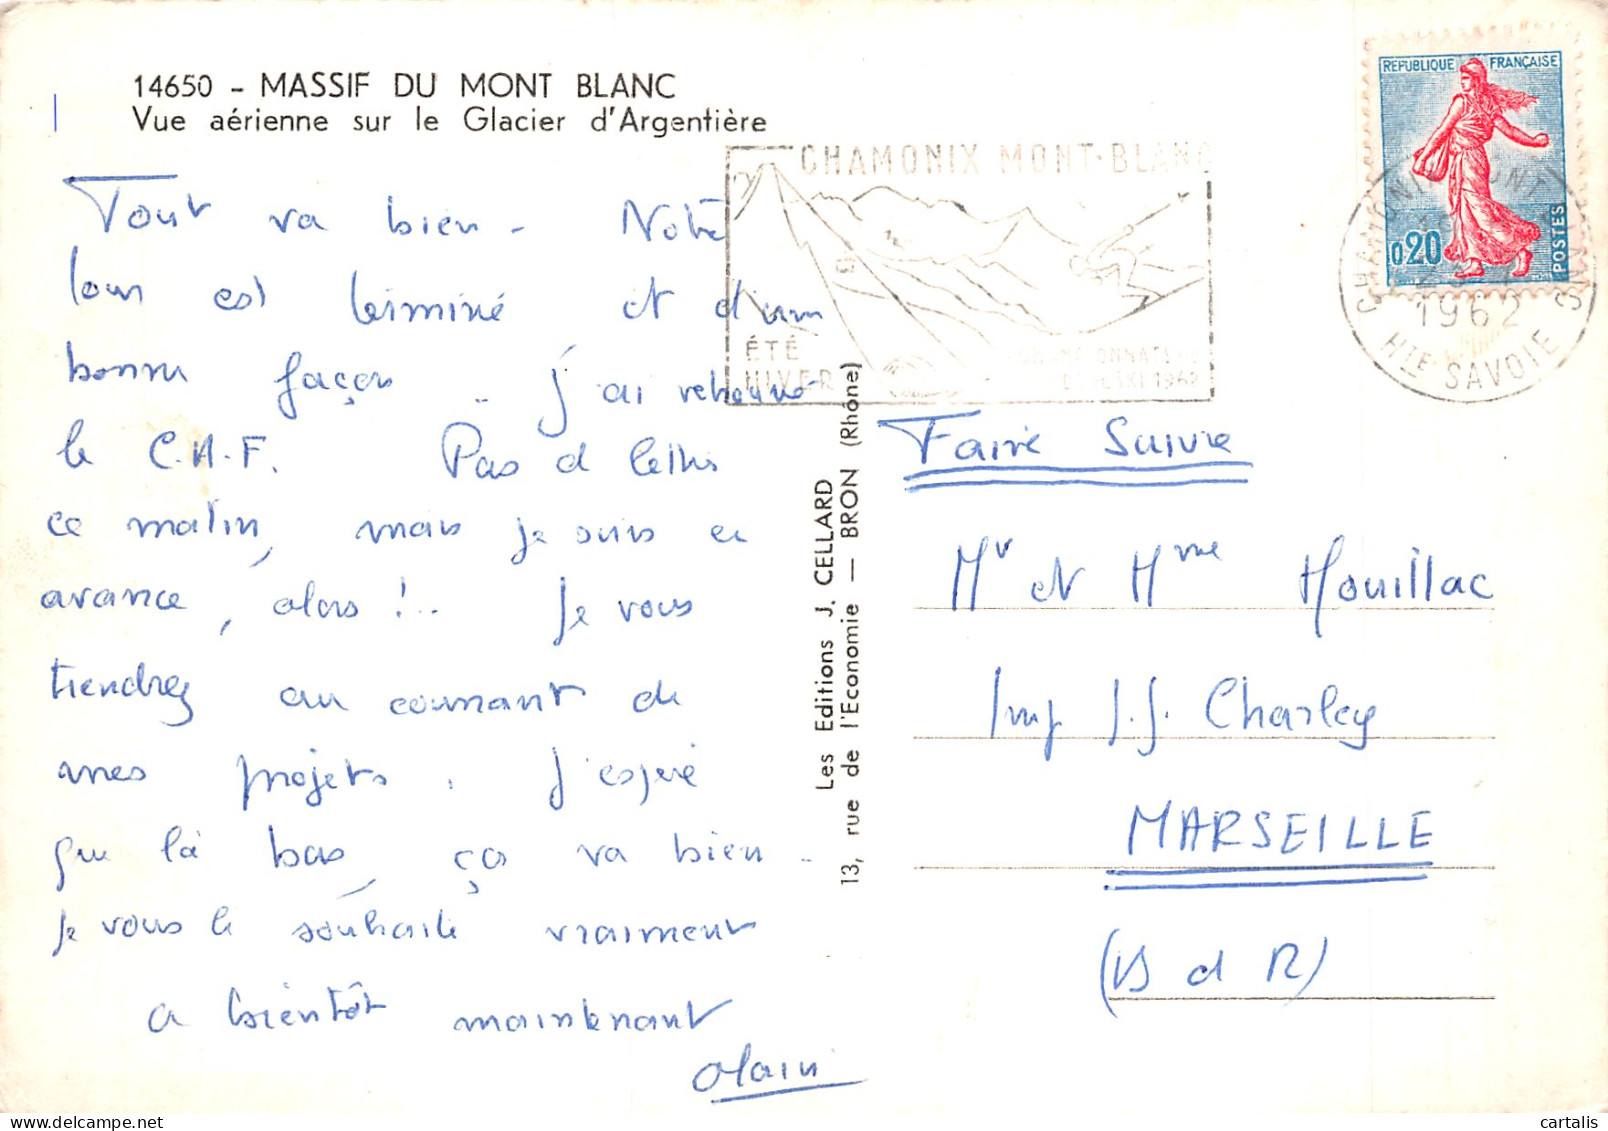 14650 - MASSIF DU MONT BLANC
Vue aérienne sur le Glacier d'Argentière
Tout va bien - Notre
tour est terminé et d'une
bonne façon .. J'ai retrouvé
le C.A.F. Pas de lettres
ce matin, mais je suis en
avance, alors !.. Je vous
tiendrez au courant de
mes projets. J'espère
que là bas, ça va bien -
Je vous le souhaite vraiment
a bientôt maintenant
Alain
Les Editions J. CELLARD
13, rue de l'Economie — BRON (Rhône)
CHAMONIX MONT-BLANC
ÉTÉ
HIVER
1962
REPUBLIQUE FRANÇAISE
0,20
POSTES
CHAMONIX MONT BLANC
1962
HTE SAVOIE
Faire Suivre
Mr et Mme Houillac
Imp J.J. Charley
MARSEILLE
(B d R)
cartalis
delcampe.net